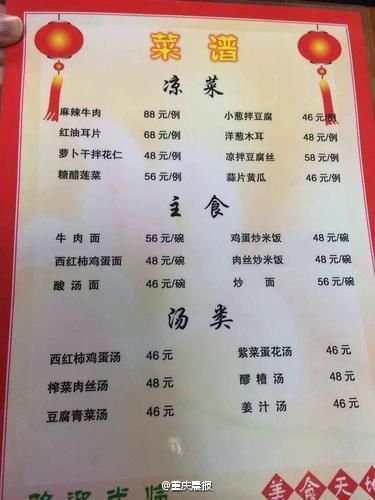 菜谱
凉菜
麻辣牛肉 88 元/例 小葱拌豆腐 46 元/例
红油耳片 68 元/例 洋葱木耳 48 元/例
萝卜干拌花仁 48 元/例 凉拌豆腐丝 58 元/例
糖醋莲菜 56 元/例 蒜片黄瓜 46 元/例
主食
牛肉面 56 元/碗 鸡蛋炒米饭 48 元/碗
西红柿鸡蛋面 48 元/碗 肉丝炒米饭 48 元/碗
酸汤面 46 元/碗 炒面 56 元/碗
汤类
西红柿鸡蛋汤 46 元 紫菜蛋花汤 48 元
榨菜肉丝汤 48 元 醪糟汤 48 元
豆腐青菜汤 46 元 姜汁汤 46 元
欢迎光临 美食天地
@重庆晨报